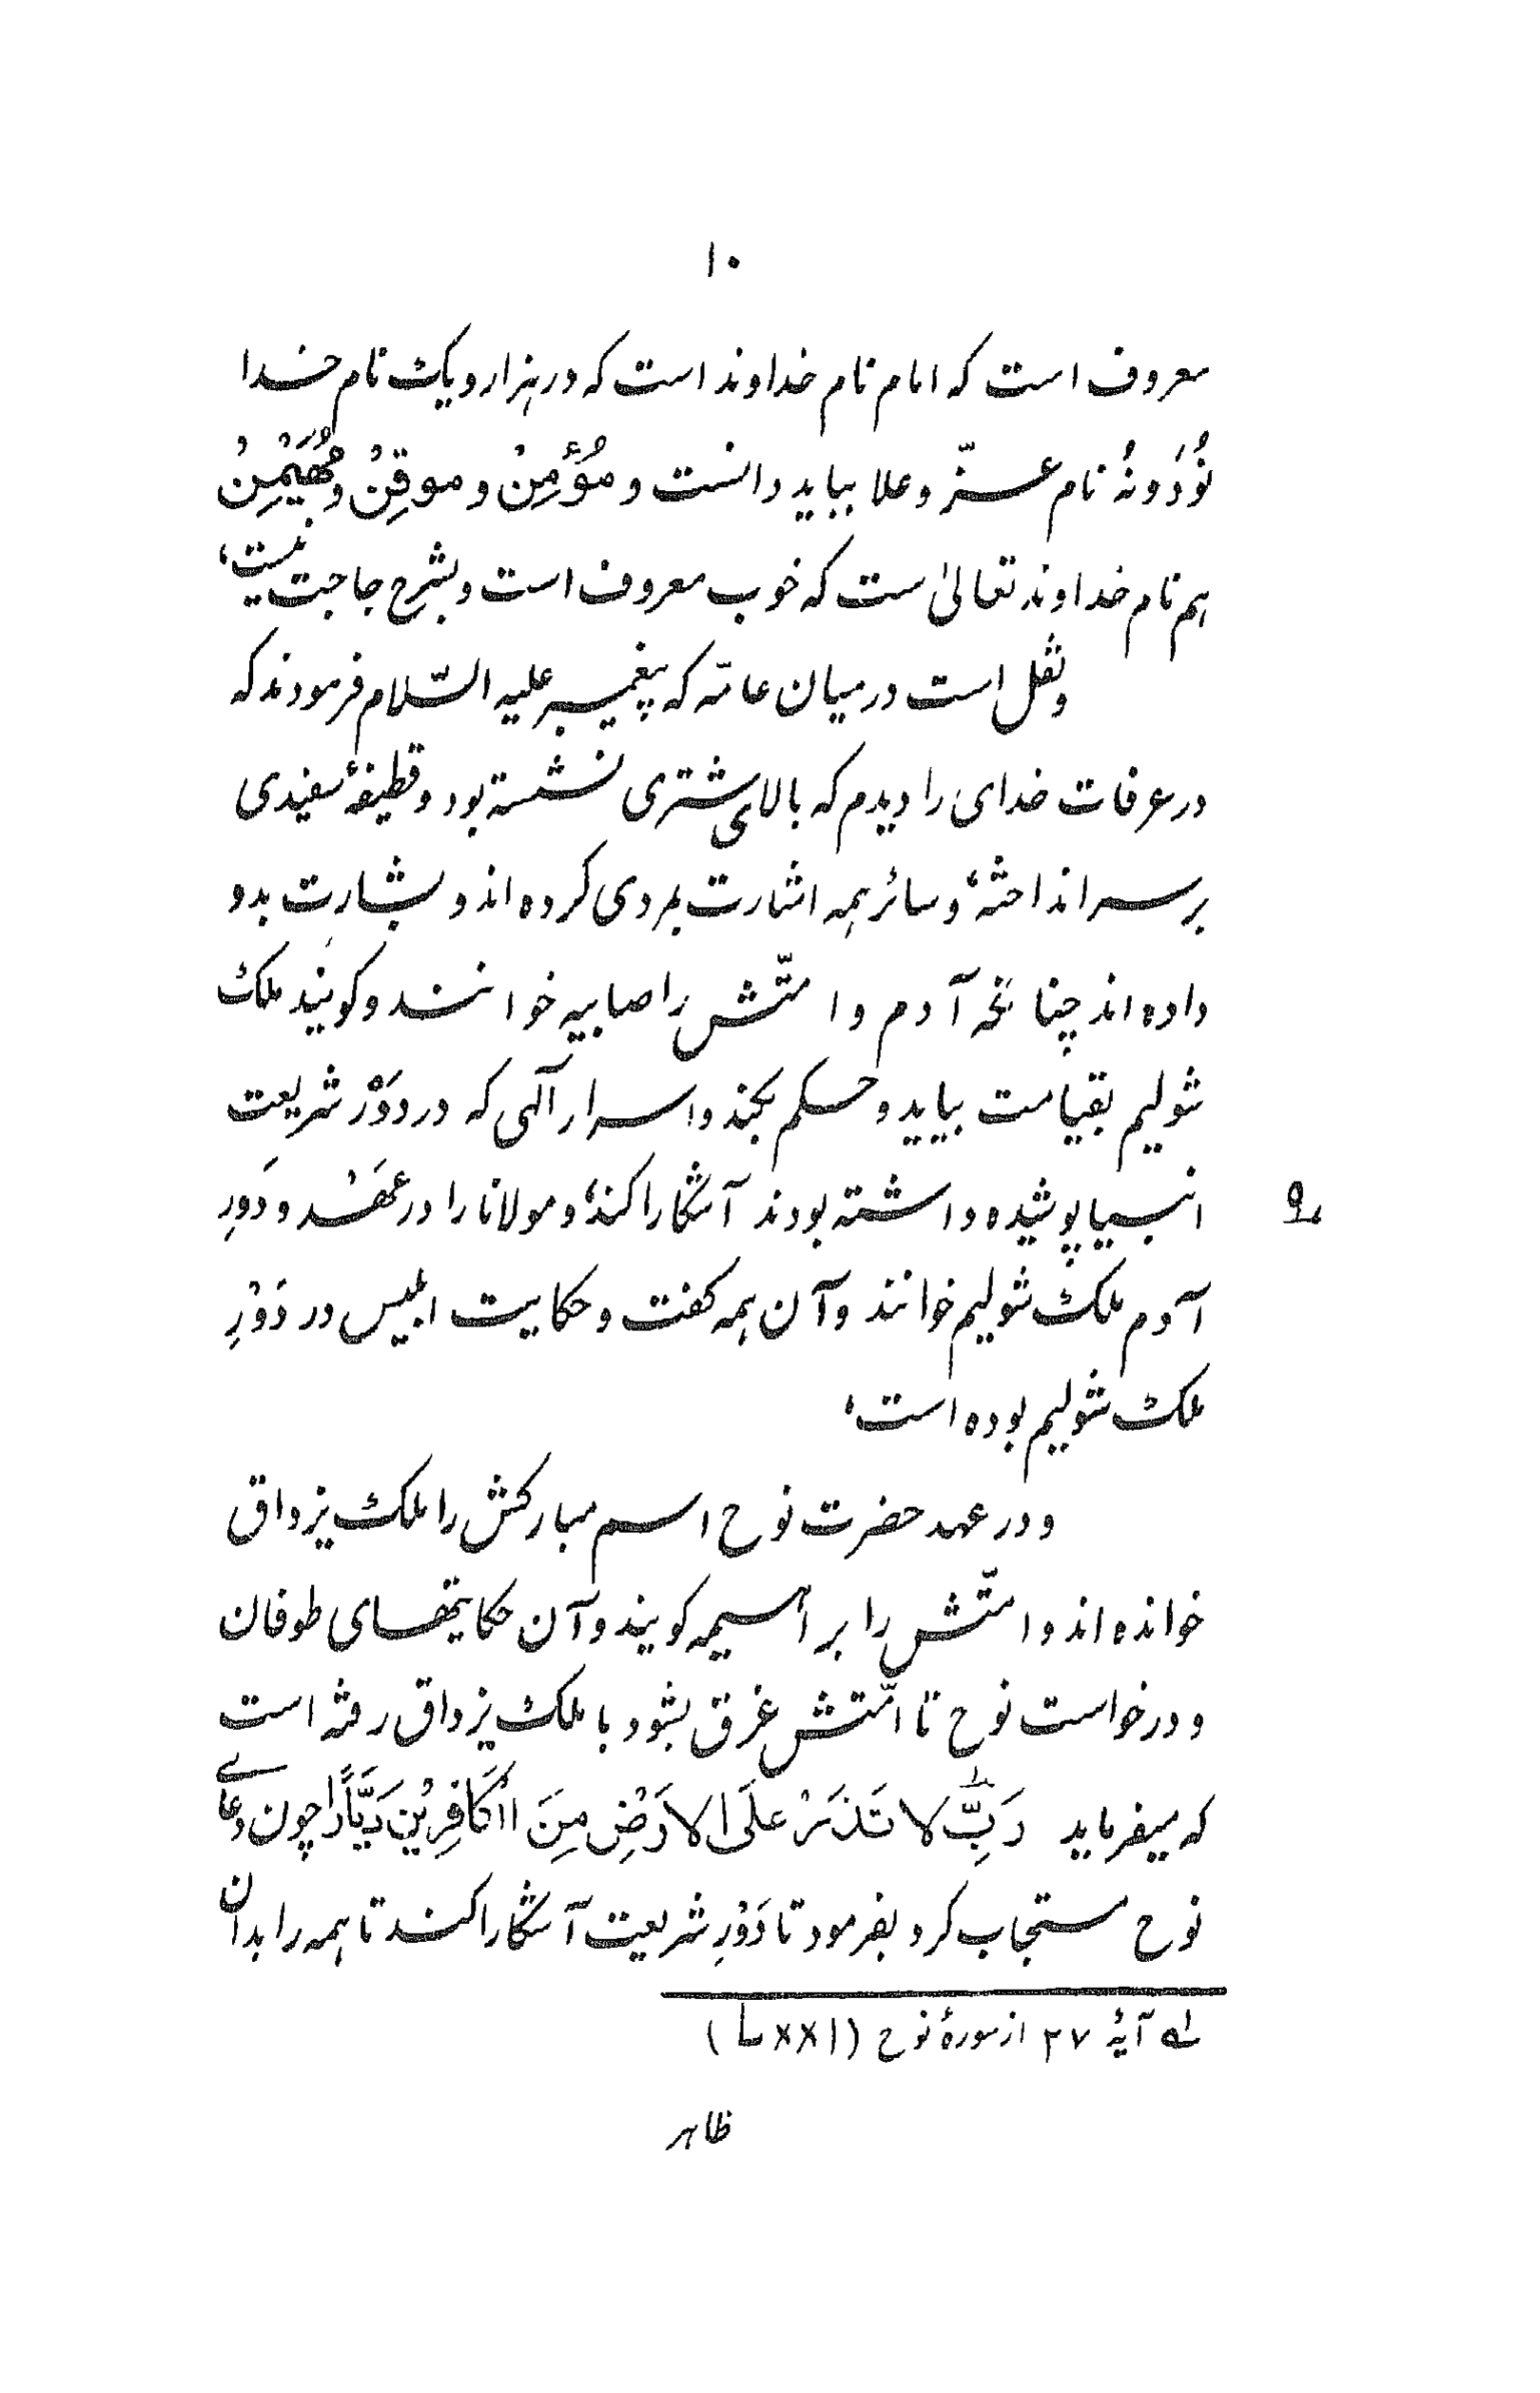 ۱۰
معروف است که امام نام خداوند است که در هزار و یک نام خدا
نُوَد و نُه نام عزّ و علا بباید دانست و مُؤمِنْ و موقِنْ و مُهَیْمِنْ
هم نام خداوند تعالیٰ ست که خوب معروف است و بشرح حاجت نیست،
و نقل است در میان عامّه که پیغمبر علیه السّلام فرمودند که
در عرفات خدای را دیدم که بالای شتری نشسته بود و قطیفهٔ سفیدی
بر سر انداخته، و سائر همه اشارت بمردی کرده اند و بشارت بدو
داده اند چنانچه آدم و امّتش را صابیه خوانند و کویند ملک
شولیم بقیامت بیاید و حکم بکند و اسرار آلهی که در دَوْر شریعت
انبیا پوشیده داشته بودند آشکارا کند، و مولانا را در عَهْد و دَورِ
آدم ملک شولیم خوانند و آن همه کفت و حکایت ابلیس در دَوْرِ
ملک شولیم بوده است،
و در عهد حضرت نوح اسم مبارکش را ملک یزداق
خوانده اند و امّتش را براهیمه کویند و آن حکایتهای طوفان
و درخواست نوح تا امّتش غرق بشود با ملک یزداق رفته است
که میفرماید رَبِّ لا تَذَرْ عَلَی الارَضِ مِنَ الْکَافِرِیْنَ دَیَّاراً چون دعای
نوح مستجاب کرد بفرمود تا دَوْرِ شریعت آشکارا کند تا همه را بدان
له آیهٔ ۲۷ از سورهٔ نوح (LXXI)
ظاهر